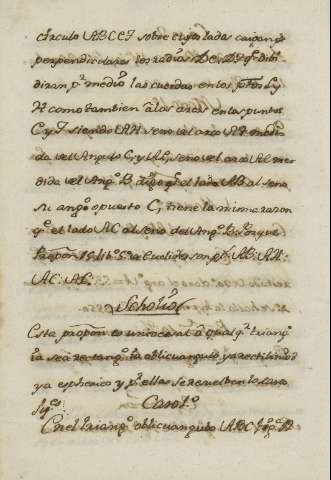 circulo ABCEF sobre cuyos lados caigan
perpendiculares los radios DE, DF q.e dibi-
diran p.r medio las cuerdas en los p.tos L y
H como tambien a los arcos en los puntos
E y F siendo AH seno del arco AF medi-
da del Angulo C, y AL seno del arco AE me-
dida del Ang.o B, digo q.e el lado AB al seno
su ang.o opuesto C, tiene la misma razon
q.e el lado AC al seno del Ang.o B. Porque
Propon. 15 lib. 5.o de Euclides son p.r AB: AH:
AC: AL.
Scholio
Esta propon. es universal a qualq.r triang.o
ya sea rectang.o ya oblicuangulo ya rectilineo
ya espherico y p.r ellas se resuelben los casos
Corol.o
En el triang.o oblicuangulo ABC